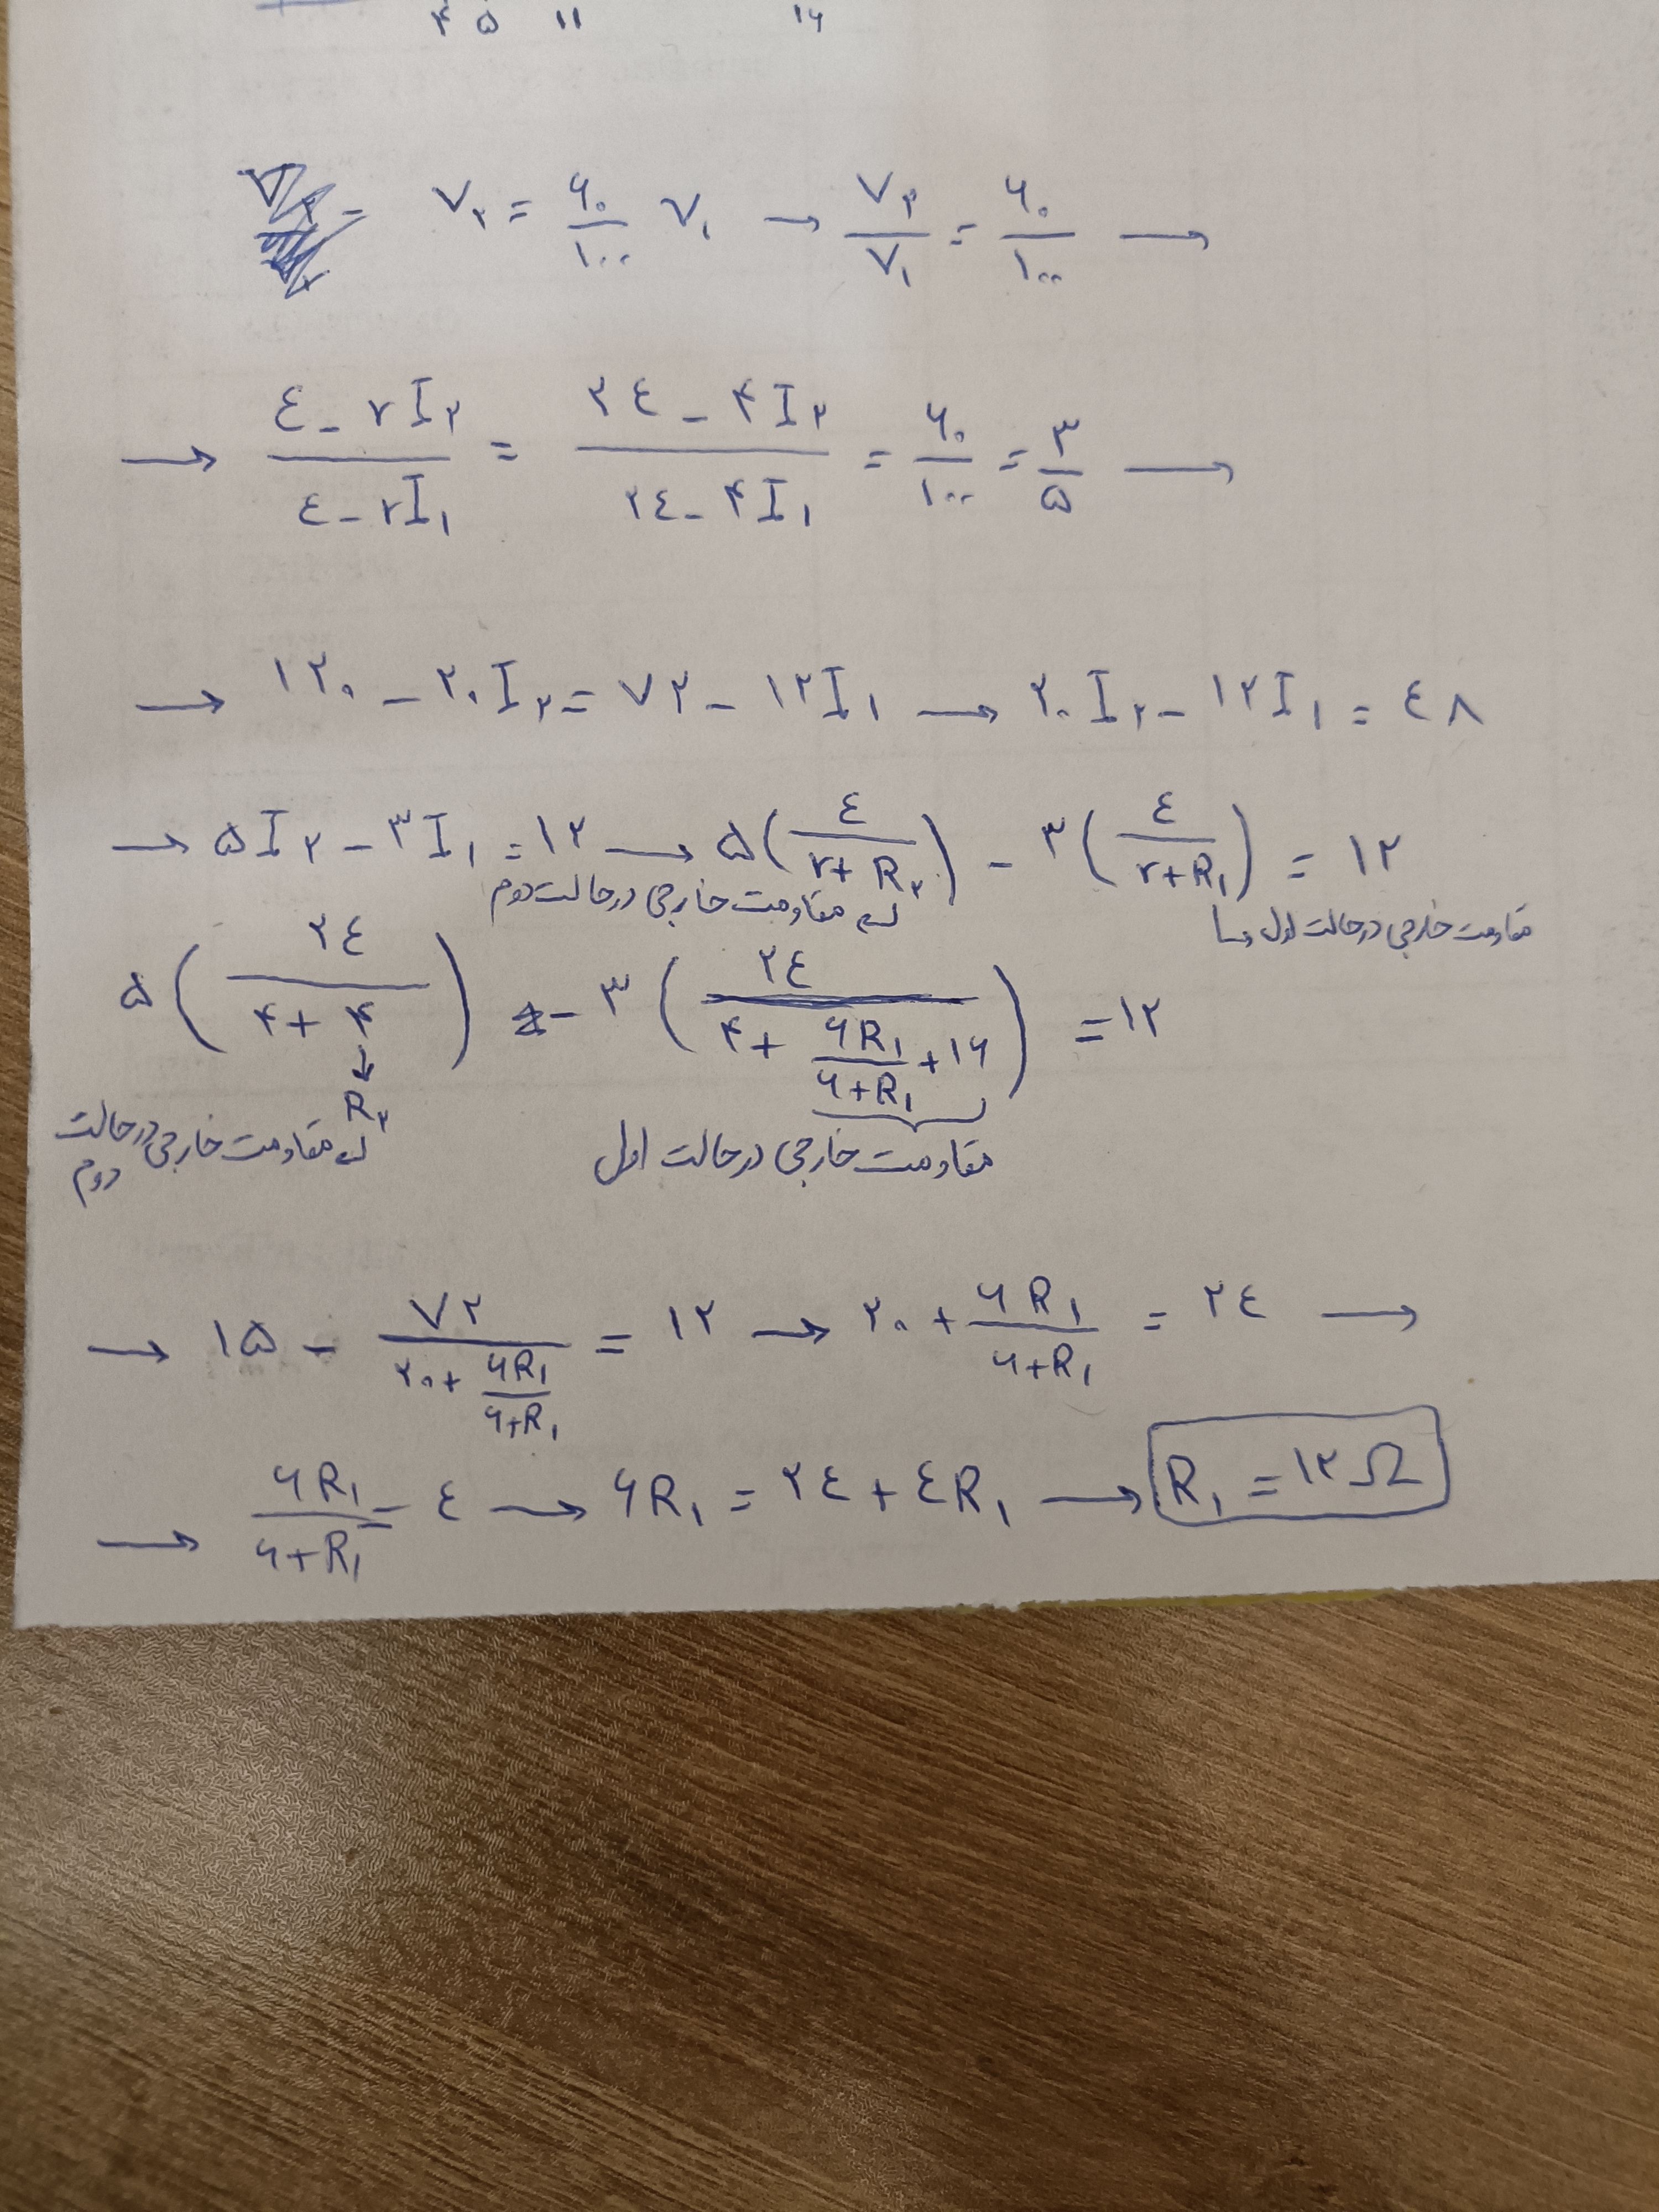 ۴ ۵ ۱۱ ۱۶
V۲ = ۶۰/۱۰۰ V۱ → V۲/V۱ = ۶۰/۱۰۰ →
→ (ε - rI۲)/(ε - rI۱) = (۲٤ - ۴I۲)/(۲٤ - ۴I۱) = ۶۰/۱۰۰ = ۳/۵ →
→ ۱۲۰ - ۲۰I۲ = ۷۲ - ۱۲I۱ → ۲۰I۲ - ۱۲I۱ = ٤۸
→ ۵I۲ - ۳I۱ = ۱۲ → ۵(ε/(r+R۲)) - ۳(ε/(r+R۱)) = ۱۲
مقاومت خارجی در حالت دوم
مقاومت خارجی در حالت اول
۵(۲٤/(۴+۴)) - ۳(۲٤/(۴ + ۶R۱/(۶+R۱) + ۱۶)) = ۱۲
R۲
مقاومت خارجی در حالت دوم
مقاومت خارجی در حالت اول
→ ۱۵ - ۷۲/(۲۰ + ۶R۱/(۶+R۱)) = ۱۲ → ۲۰ + ۶R۱/(۶+R۱) = ۲٤ →
→ ۶R۱/(۶+R۱) = ٤ → ۶R۱ = ۲٤ + ٤R۱ → R۱ = ۱۲Ω